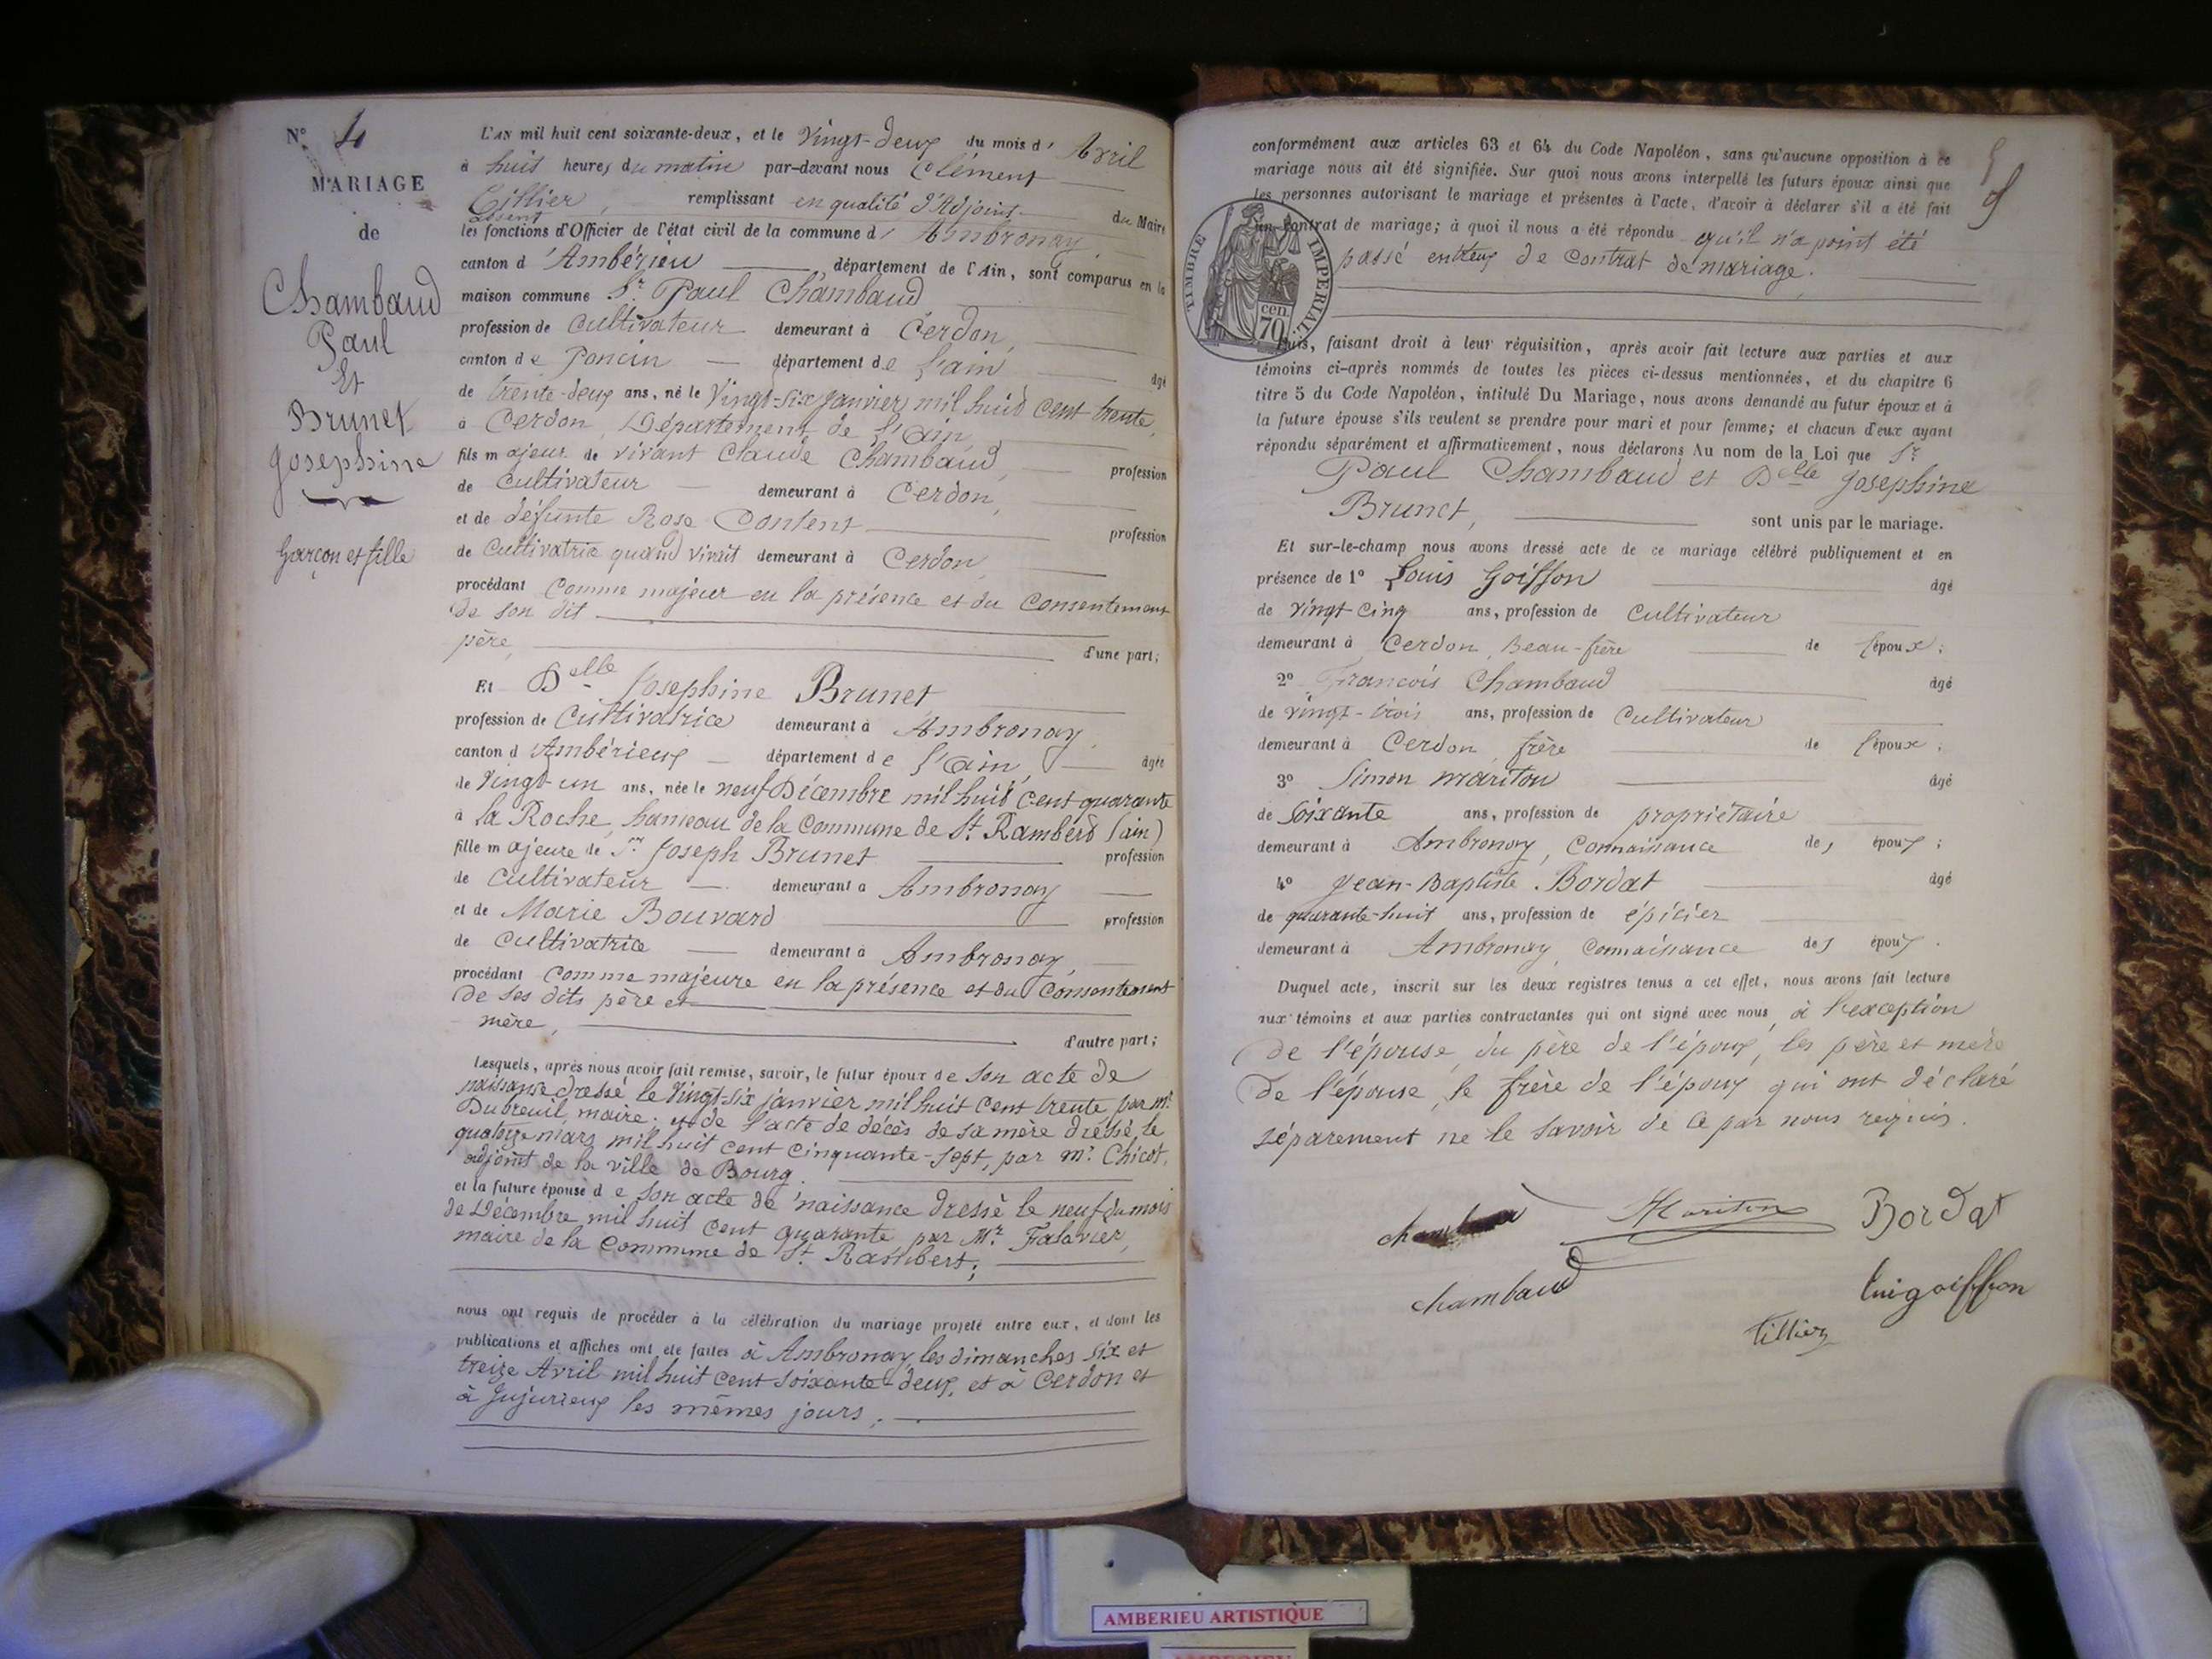 N° 4
MARIAGE
de
Chambaud
Paul
Et
Brunet
Josephine
Garçon et fille
L'AN mil huit cent soixante-deux, et le Vingt-deux du mois d' Avril
à huit heures du matin par-devant nous Clément
Tillier, remplissant en qualité d'Adjoint du Maire
absent
les fonctions d'Officier de l'état civil de la commune d' Ambronay
canton d'Ambérieu département de l'Ain, sont comparus en la
maison commune Sr Paul Chambaud
profession de Cultivateur demeurant à Cerdon,
canton de Poncin département de l'ain âgé
de trente-deux ans, né le Vingt-six Janvier mil huit cent trente,
à Cerdon, Département de l'Ain,
fils majeur de vivant Claude Chambaud, profession
de Cultivateur demeurant à Cerdon,
et de défunte Rose Content profession
de Cultivatrice quand vivait demeurant à Cerdon,
procédant Comme majeur en la présence et du Consentement
de son dit
père, d'une part;
Et Delle Josephine Brunet
profession de Cultivatrice demeurant à Ambronay,
canton d Ambérieux département de l'Ain, âgée
de Vingt-un ans, née le neuf Décembre mil huit cent quarante
à la Roche, hameau de la Commune de St Rambert (ain)
fille majeure de Sr Joseph Brunet profession
de Cultivateur demeurant à Ambronay
et de Marie Bouvard profession
de Cultivatrice demeurant à Ambronay,
procédant Comme majeure en la présence et du Consentement
de ses dits père et
mère, d'autre part;
Lesquels, après nous avoir fait remise, savoir, le futur époux de son acte de
naissance dressé le Vingt-six janvier mil huit cent trente, par mr
Dubreuil, maire; et de l'acte de décès de sa mère dressé, le
quatorze mars mil huit cent cinquante-sept, par mr Chicot,
adjoint de la ville de Bourg.
et la future épouse de son acte de naissance dressé le neuf du mois
de Décembre mil huit cent quarante par Mr Falavier,
maire de la Commune de St Rambert;
nous ont requis de procéder à la célébration du mariage projeté entre eux, et dont les
publications et affiches ont été faites à Ambronay, les dimanches six et
treize Avril mil huit cent soixante-deux, et à Cerdon et
à Jujurieux les mêmes jours,
conformément aux articles 63 et 64 du Code Napoléon, sans qu'aucune opposition à ce
mariage nous ait été signifiée. Sur quoi nous avons interpellé les futurs époux ainsi que
les personnes autorisant le mariage et présentes à l'acte, d'avoir à déclarer s'il a été fait
un contrat de mariage; à quoi il nous a été répondu qu'il n'a point été
passé entreux de Contrat de mariage.
TIMBRE IMPERIAL.
70 cen.
Puis, faisant droit à leur réquisition, après avoir fait lecture aux parties et aux
témoins ci-après nommés de toutes les pièces ci-dessus mentionnées, et du chapitre 6
titre 5 du Code Napoléon, intitulé Du Mariage, nous avons demandé au futur époux et à
la future épouse s'ils veulent se prendre pour mari et pour femme; et chacun d'eux ayant
répondu séparément et affirmativement, nous déclarons Au nom de la Loi que Sr
Paul Chambaud et Delle Josephine
Brunet, sont unis par le mariage.
Et sur-le-champ nous avons dressé acte de ce mariage célébré publiquement et en
présence de 1° Louis Goiffon âgé
de vingt cinq ans, profession de Cultivateur
demeurant à Cerdon, Beau-frère de l'époux;
2° Francois Chambaud âgé
de vingt-trois ans, profession de Cultivateur
demeurant à Cerdon, frère de l'époux;
3° Simon Mariton âgé
de soixante ans, profession de propriétaire
demeurant à Ambronay, Connaissance des époux;
4° Jean-Baptiste Bordat âgé
de quarante-huit ans, profession de épicier
demeurant à Ambronay, Connaissance des époux.
Duquel acte, inscrit sur les deux registres tenus à cet effet, nous avons fait lecture
aux témoins et aux parties contractantes qui ont signé avec nous, à l'exception
de l'épouse, du père de l'époux, les père et mère
de l'épouse, le frère de l'époux qui ont déclaré
séparement ne le savoir de ce par nous requis.
Mariton Bordat
chambaud
Luigoiffon
Tillier
AMBERIEU ARTISTIQUE